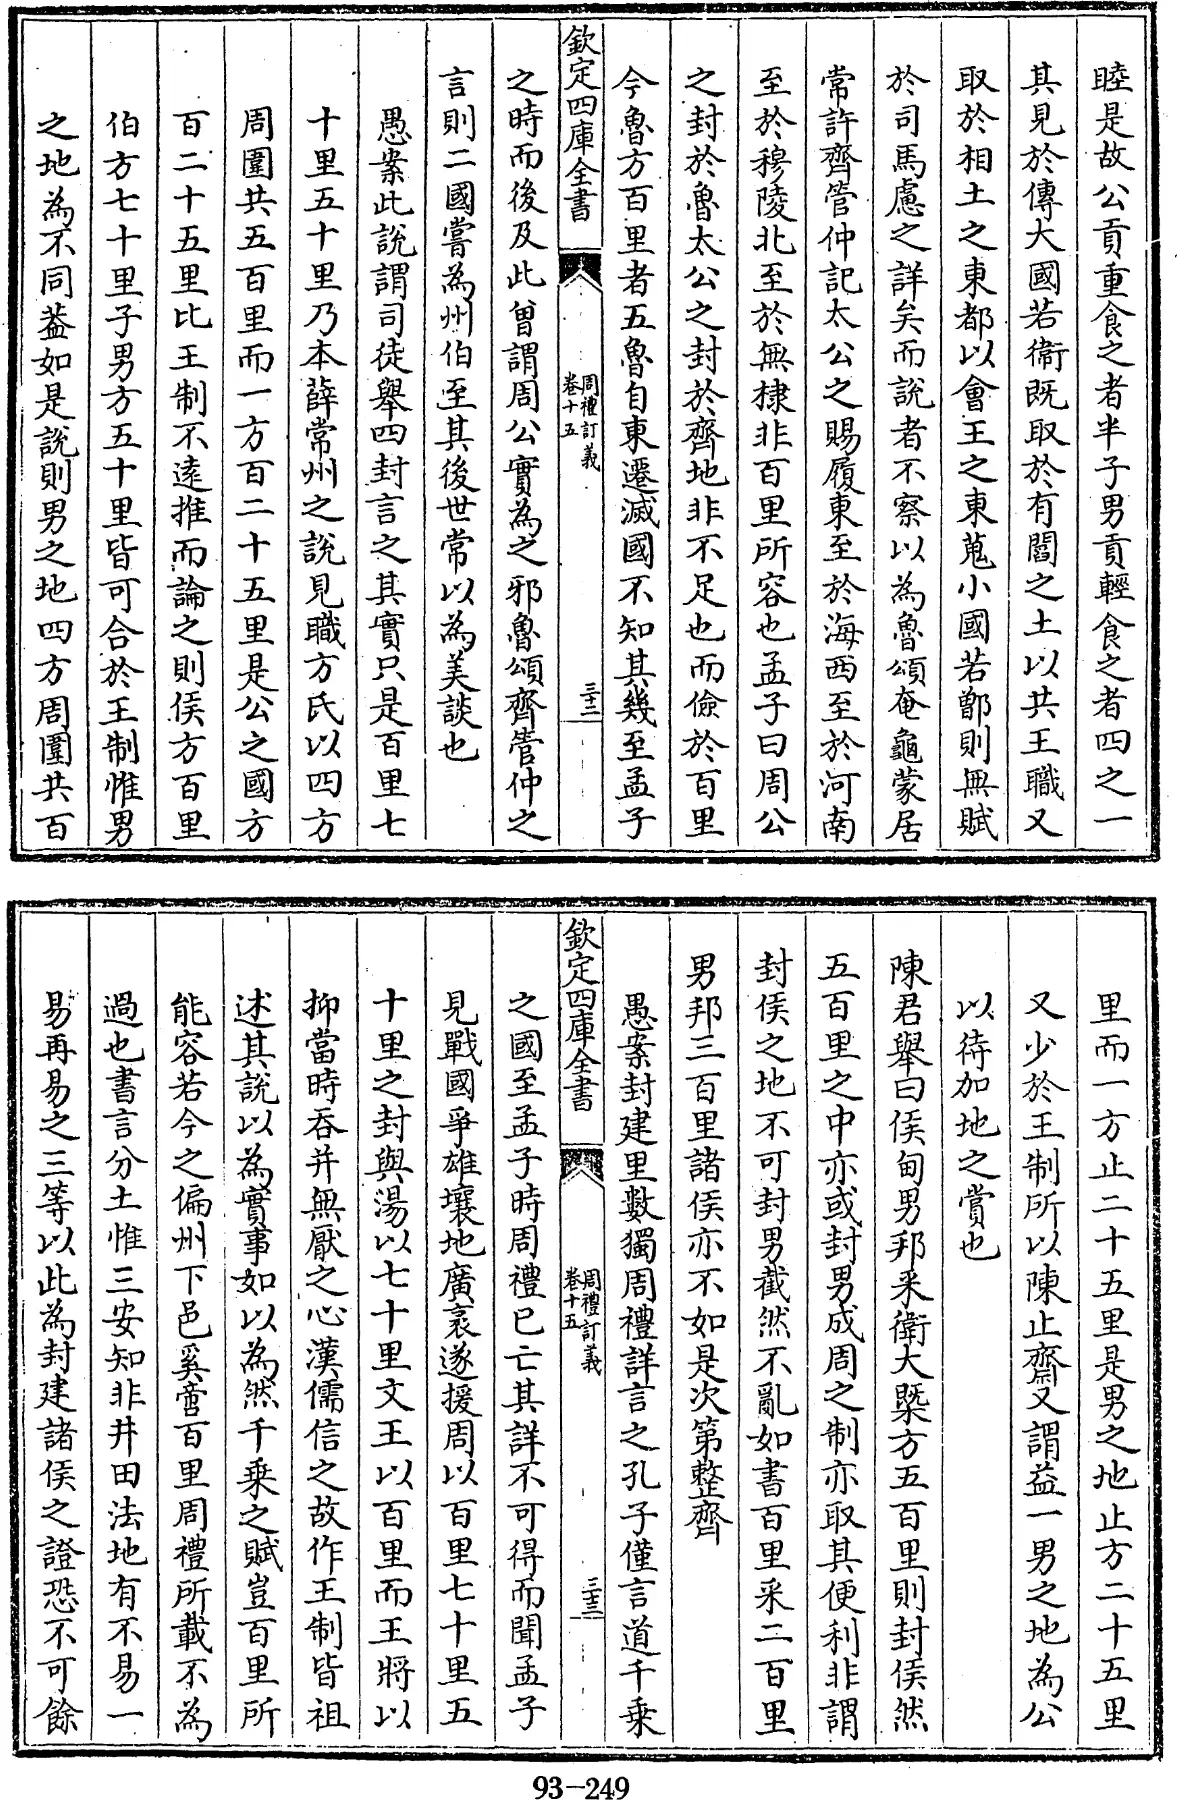 睦是故公貢重食之者半子男貢輕食之者四之一
其見於傳大國若衞既取於有閻之土以共王職又
取於相土之東都以會王之東蒐小國若鄫則無賦
於司馬慮之詳矣而說者不察以為魯頌奄龜蒙居
常許齊管仲記太公之賜履東至於海西至於河南
至於穆陵北至於無棣非百里所容也孟子曰周公
之封於魯太公之封於齊地非不足也而儉於百里
今魯方百里者五魯自東遷滅國不知其幾至孟子
欽定四庫全書
周禮訂義
卷十五
三十二
之時而後及此曾謂周公實為之邪魯頌齊管仲之
言則二國嘗為州伯至其後世常以為美談也
愚案此說謂司徒舉四封言之其實只是百里七
十里五十里乃本薛常州之說見職方氏以四方
周圍共五百里而一方百二十五里是公之國方
百二十五里比王制不遠推而論之則侯方百里
伯方七十里子男方五十里皆可合於王制惟男
之地為不同葢如是說則男之地四方周圍共百
里而一方止二十五里是男之地止方二十五里
又少於王制所以陳止齋又謂益一男之地為公
以待加地之賞也
陳君舉曰侯甸男邦采衛大槩方五百里則封侯然
五百里之中亦或封男成周之制亦取其便利非謂
封侯之地不可封男截然不亂如書百里采二百里
男邦三百里諸侯亦不如是次第整齊
愚案封建里數獨周禮詳言之孔子僅言道千乗
欽定四庫全書
周禮訂義
卷十五
三十三
之國至孟子時周禮已亡其詳不可得而聞孟子
見戰國爭雄壤地廣袤遂援周以百里七十里五
十里之封與湯以七十里文王以百里而王將以
抑當時吞并無厭之心漢儒信之故作王制皆祖
述其說以為實事如以為然千乗之賦豈百里所
能容若今之偏州下邑奚啻百里周禮所載不為
過也書言分土惟三安知非井田法地有不易一
易再易之三等以此為封建諸侯之證恐不可餘
93-249